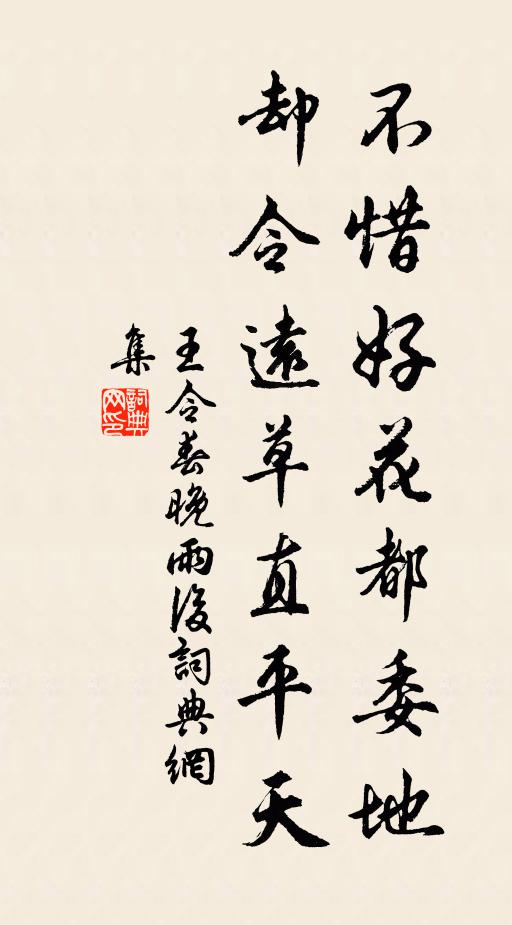 不惜好花都委地
却令遠草直平天
王令春晚雨後詞典網
集
詞典
网印